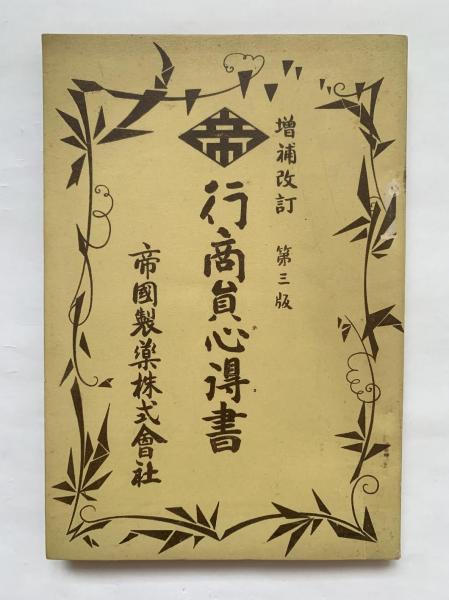 増補改訂 第三版
帝
行商員心得書
帝國製藥株式會社